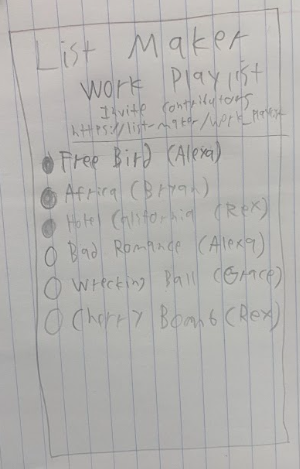 List Maker
Work Playlist
Invite Contributors
https://list-maker/work_playlist
Free Bird (Alexa)
Africa (Bryan)
Hotel California (Rex)
Bad Romance (Alexa)
Wrecking Ball (Grace)
Cherry Bomb (Rex)